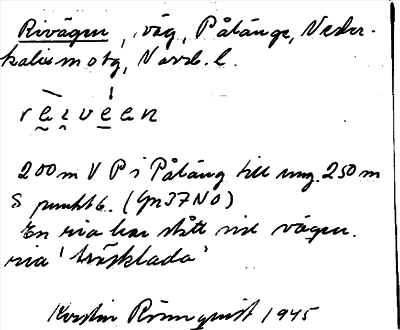 Rivägen, väg, Påläng, Neder-
kalix motg, Norrb. l.
200 m V P i Påläng till ung. 250 m
S punkt 6. (Gn 37 NO)
En ria har stått vid vägen.
ria 'trösklada'
Kerstin Rönnqvist 1945